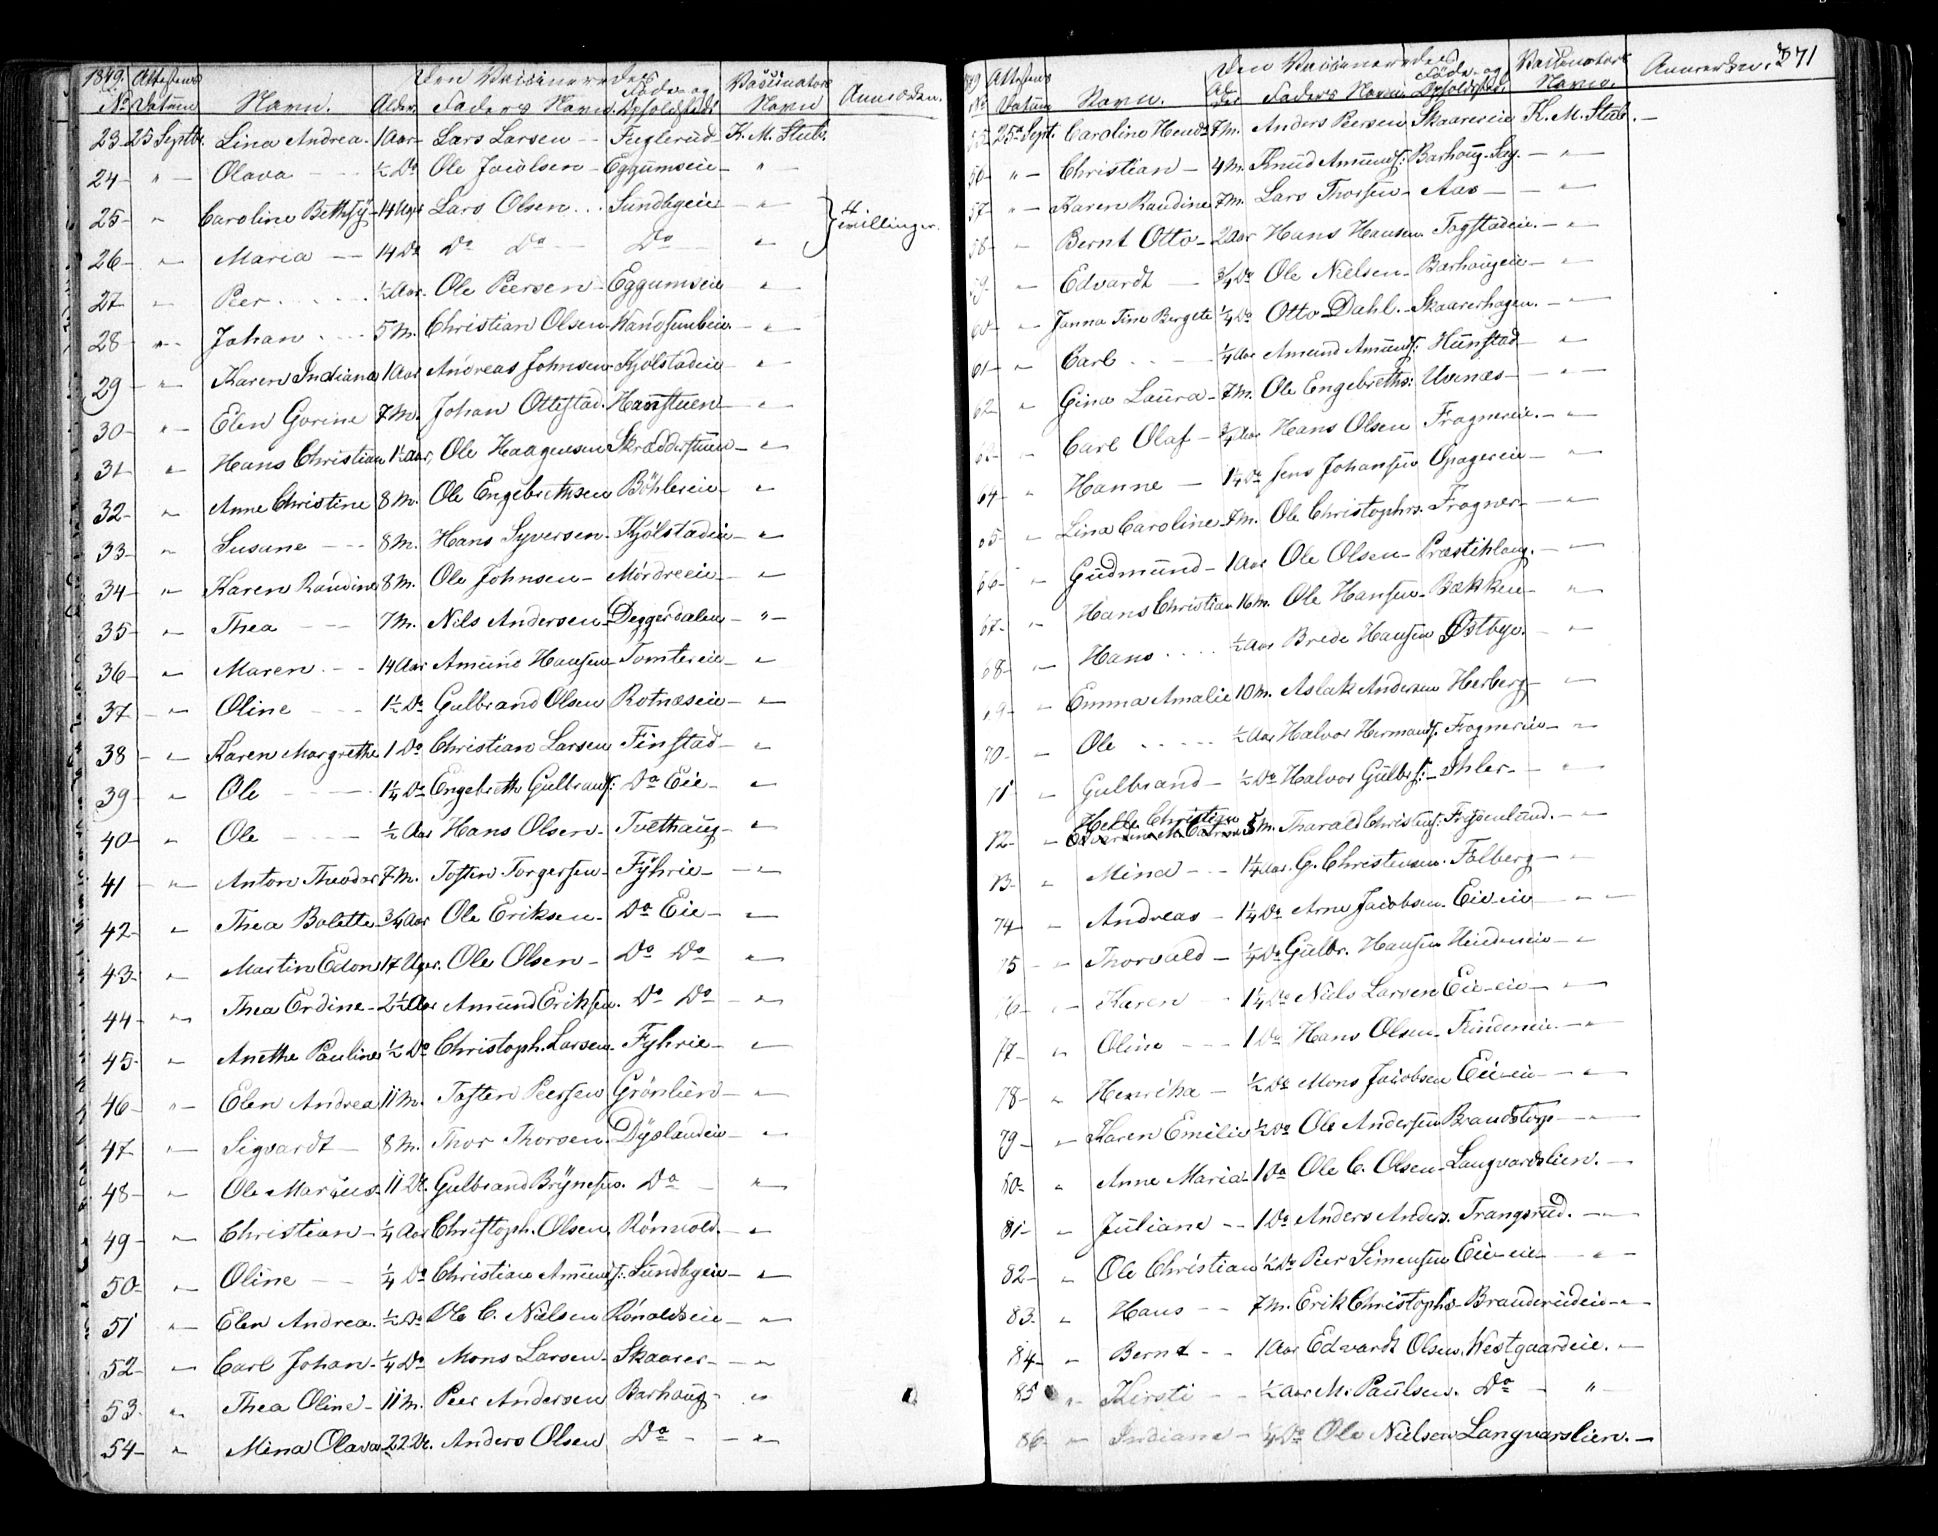 1849. Attestens Den Vaccineredes Vaccinators
No Datum Navn. Alder Faders Navn. Føde- og Opholdsted Navn Anmærkn.
23 25 Septbr. Lina Andrea 1 Aar Lars Larsen Fuglerud K. M. Stub.
24 " Olava ½ Do Ole Jacobsen Eggumseie "
25 " Caroline Bethsÿ 14 Uger Lars Olsen Sundbyeie " } Tvillinger.
26 " Maria 14 Do Do Do Do "
27 " Peer ½ Aar Ole Peersen Eggumseie "
28 " Johan 5 M. Christian Olsen "
29 " Karen Indiana 1 Aar Andreas Johnsen Kjølstadeie "
30 " Elen Gorine 7 M. Johan Ottestad Hanstuen "
31 " Hans Christian 1½ Aar Ole Haagensen Skrædderstuen "
32 " Anne Christine 8 M. Ole Engebrethsen Böhlereie "
33 " Susane 8 M. Hans Syversen Kjølstadeie "
34 " Karen Randine 8 M. Ole Johnsen Mördreeie "
35 " Thea 7 M. Nils Andersen Deggerdalen "
36 " Maren 14 Aar Amund Hansen Tomtereie "
37 " Oline 1½ Do Gulbrand Olsen Rotnæseie "
38 " Karen Margrethe 1 Do Christian Larsen Finstad "
39 " Ole 1¼ Do Engebreth Gulbrands: Do Eie "
40 " Ole ½ Aar Hans Olsen Tvethaug "
41 " Anton Theodor 7 M. Tosten Torgersen Fÿhrie "
42 " Thea Bolette ¾ Aar Ole Eriksen Do Eie "
43 " Martin Edon 17 Uger. Ole Olsen Do Do "
44 " Thea Erdine 2½ Aar Amund Eriksen. Do Do "
45 " Anethe Pauline ½ Do Christoph. Larsen Fÿhrie "
46 " Elen Andrea 11 M. Tosten Peersen Grönlund "
47 " Sigvardt 8 M. Thor Thorsen Dÿslandeie "
48 " Ole Marius 11 Do. Gulbrand Brÿnesen. Do "
49 " Christian ¼ Aar Christoph. Olsen. Rönvold. "
50 " Oline ¼ Do Christian Amunds: Sundbyeie "
51 " Elen Andrea ½ Do Ole C. Nielsen Rönoldseie "
52 " Carl Johan ¼ Do Mons Larsen Skaarer "
53 " Thea Oline 11 M. Peer Andersen Barhaug "
54 " Mina Olava 22 Do. Anders Olsen Do "
371
49 Attestens Den Vaccineredes Vaccinators
No Datum Navn. Alder Faders Navn. Føde- og Opholdsted Navn. Anmærkn.
55 25de Sept. Caroline 7 M. Anders Peersen Skaarereie K. M. Stub.
56 " Christian 4 M. Knud Amunds: Barhaug "
57 " Karen Randine 7 M. Lars Thorsen Aas "
58 " Bernt Otto 2 Aar Hans Hansen Togstadeie. "
59 " Edvardt ¾ Do Ole Nielsen Barhougeie "
60 " Janna Tine Bergete ¼ Do Otto Dahl. Skaarerhagen. "
61 " Carl ¼ Aar Amund Amunds: Hunstad "
62 " Gina Laura 7 M. Ole Engebreths: Uvenæs "
63 " Carl Olaf ¾ Aar Hans Olsen Frognereie. "
64 " Hanne 1¼ Do Jens Johansen Opagereie "
65 " Lina Caroline 7 M. Ole Christophrs. Frogner "
66 " Gudmund 1 Aar Ole Olsen "
67 " Hans Christian 16 M. Ole Hansen Bækken "
68 " Hans ½ Aar Brede Hansen Østbye. "
69 " Emma Amalie 10 M. Aslak Andersen Herberg "
70 " Ole ½ Aar Halvor Hermands. Frognereie "
71 " Gulbrand ½ Do Halvor Gulbrs: Ihler "
72 " Helle Christine 5 M. Tharald Christens: "
73 " Mina 1¼ Aar. G. Christensen. Falberg "
74 " Andreas 1¼ Do Arne Jacobsen. Eie-eie "
75 " Thorvald ¼ Do Gulbr. Hansen "
76 " Karen 1¼ Do Niels Larsen Eie-eie "
77 " Oline 1 Do Hans Olsen "
78 " Henriha ½ Do Mons Jacobsen Eie-eie "
79 " Karen Emilie ½ Do Ole Andersen Brandstorp "
80 " Anne Maria 1 Do Ole C. Olsen Langvardslien. "
81 " Juliane 1 Do Anders Anders. Trangsrud. "
82 " Ole Christian ½ Do Peer Simensen Eie-eie "
83 " Hans 7 M. Erik Christophs. Branderudeie "
84 " Bernt 1 Aar Edvardt Olsen. Westgaardeie. "
85 " Kirsti ½ Aar M. Paulsen. Do "
86 " Indiane ¼ Do Ole Nielsen Langvarslien. "